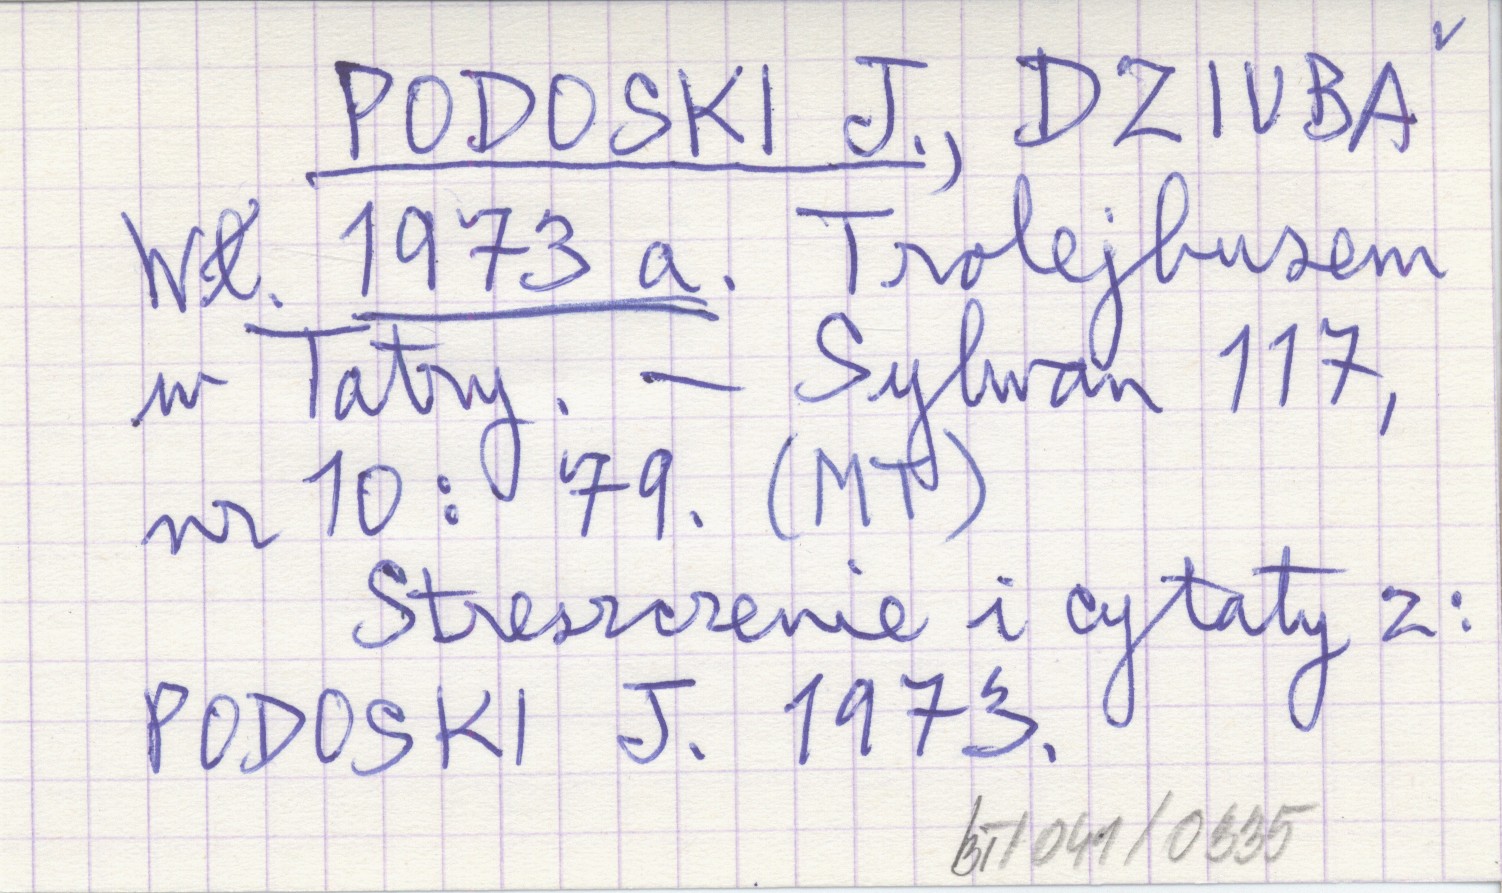 PODOSKI J., DZIUBA
Wł. 1973 a. Trolejbusem
w Tatry. — Sylwan 117,
nr 10: 79. (MT)
Streszczenie i cytaty z:
PODOSKI J. 1973.
BT/041/0335